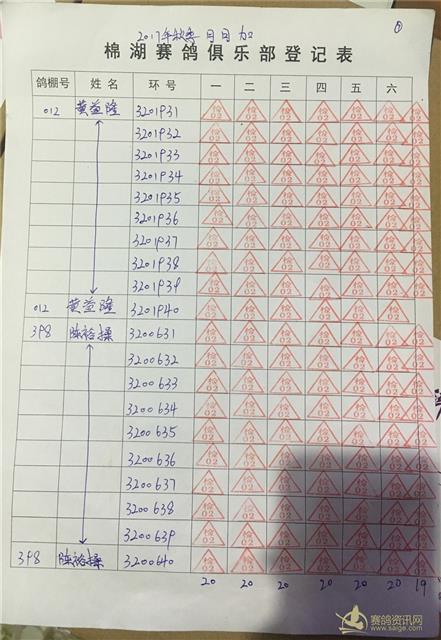 ①
2017年秋季 月日加
棉湖赛鸽俱乐部登记表
鸽棚号 姓名 环号 一 二 三 四 五 六
012 黄益隆 3201931 检02 检02 检02 检02 检02 检02 检02
3201932 检02 检02 检02 检02 检02 检02 检02
3201933 检02 检02 检02 检02 检02 检02 检02
3201934 检02 检02 检02 检02 检02 检02 检02
3201935 检02 检02 检02 检02 检02 检02 检02
3201936 检02 检02 检02 检02 检02 检02 检02
3201937 检02 检02 检02 检02 检02 检02 检02
3201938 检02 检02 检02 检02 检02 检02 检02
3201939 检02 检02 检02 检02 检02 检02 检02
012 黄益隆 3201940 检02 检02 检02 检02 检02 检02
398 陈裕操 3200631 检02 检02 检02 检02 检02 检02 检02
3200632 检02 检02 检02 检02 检02 检02 检02
3200633 检02 检02 检02 检02 检02 检02 检02
3200634 检02 检02 检02 检02 检02 检02 检02
3200635 检02 检02 检02 检02 检02 检02 检02
3200636 检02 检02 检02 检02 检02 检02 检02
3200637 检02 检02 检02 检02 检02 检02 检02
3200638 检02 检02 检02 检02 检02 检02 检02
3200639 检02 检02 检02 检02 检02 检02 检02
398 陈裕操 3200640 检02 检02 检02 检02 检02 检02 检02
20 20 20 20 20 20 19
赛鸽资讯网
www.saige.com